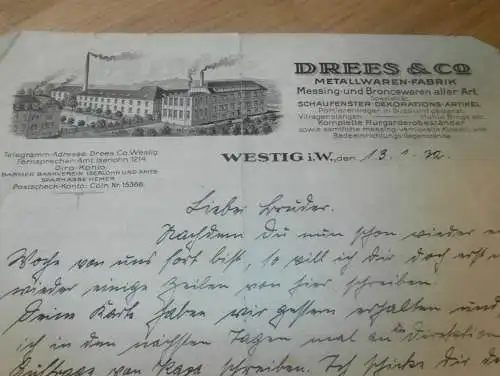 DREES & CO
METALLWAREN-FABRIK
Messing-und Broncewaren aller Art.
SCHAUFENSTER-DEKORATIONS-ARTIKEL
Komplette Flurgarderobeständer
Telegramm-Adresse: Drees Co. Westig.
Fernsprecher: Amt Iserlohn 1214.
Giro-Konto:
BARMER BANKVEREIN ISERLOHN UND AMTS-
SPARKASSE HEMER
Postscheck-Konto: Cöln Nr. 15366.
WESTIG i.W., den 13. 1. 32.
Lieber Bruder.
Nachdem du nun schon wieder e
Woche von uns fort bist, so will ich dir doch erst e
wieder einige Zeilen von hier schreiben.
Deine Karte haben wir gestern erhalten un
ich in den nächsten Tagen mal an die Direktion
von schreiben. Ich schicke dir de